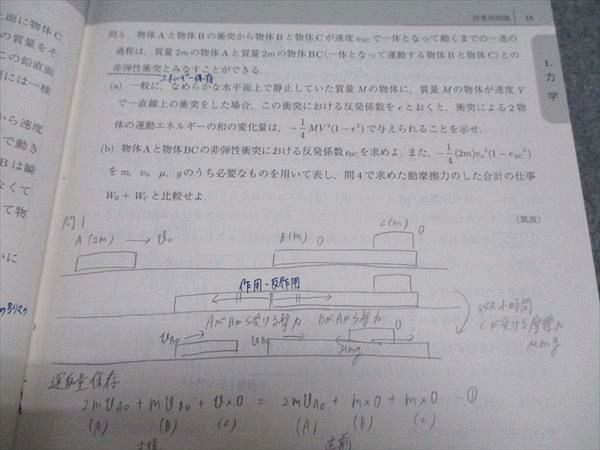 授業用問題 15
1. 力学
上面に物体C
の質量をそ
この鉛直面
間には一様
から速度
で動き
Bは瞬
なくて
て物
いに
問5 物体Aと物体Bの衝突から物体Bと物体Cが速度 vBC で一体となって動くまでの一連の
過程は，質量2mの物体Aと質量2mの物体BC(一体となって運動する物体Bと物体C)との
非弾性衝突とみなすことができる．
(a) 一般に，なめらかな水平面上で静止していた質量Mの物体に，質量Mの物体が速度V
で一直線上の衝突をした場合，この衝突における反発係数をeとおくと，衝突による2物
体の運動エネルギーの和の変化量は，-1/4 MV²(1-e²)で与えられることを示せ．
(b) 物体Aと物体BCの非弾性衝突における反発係数 eBC を求めよ．また，-1/4(2m)v₀²(1-eBC²)
をm，v₀，μ，gのうち必要なものを用いて表し，問4で求めた動摩擦力のした合計の仕事
WB+WCと比較せよ．
(筑波)
問1
A(2m) → v0
B(m) 0
C(m) 0
作用・反作用
AがBから受ける撃力 BがAから受ける撃力
vA0 vB0 μmg 0
Cが受ける摩擦力
μmg
運動量保存
2mvA0 + mvB0 + 0×0 = 2mvA0 + m×0 + m×0 ①
(A) (B) (C) (A) (B) (C)
直後 直前